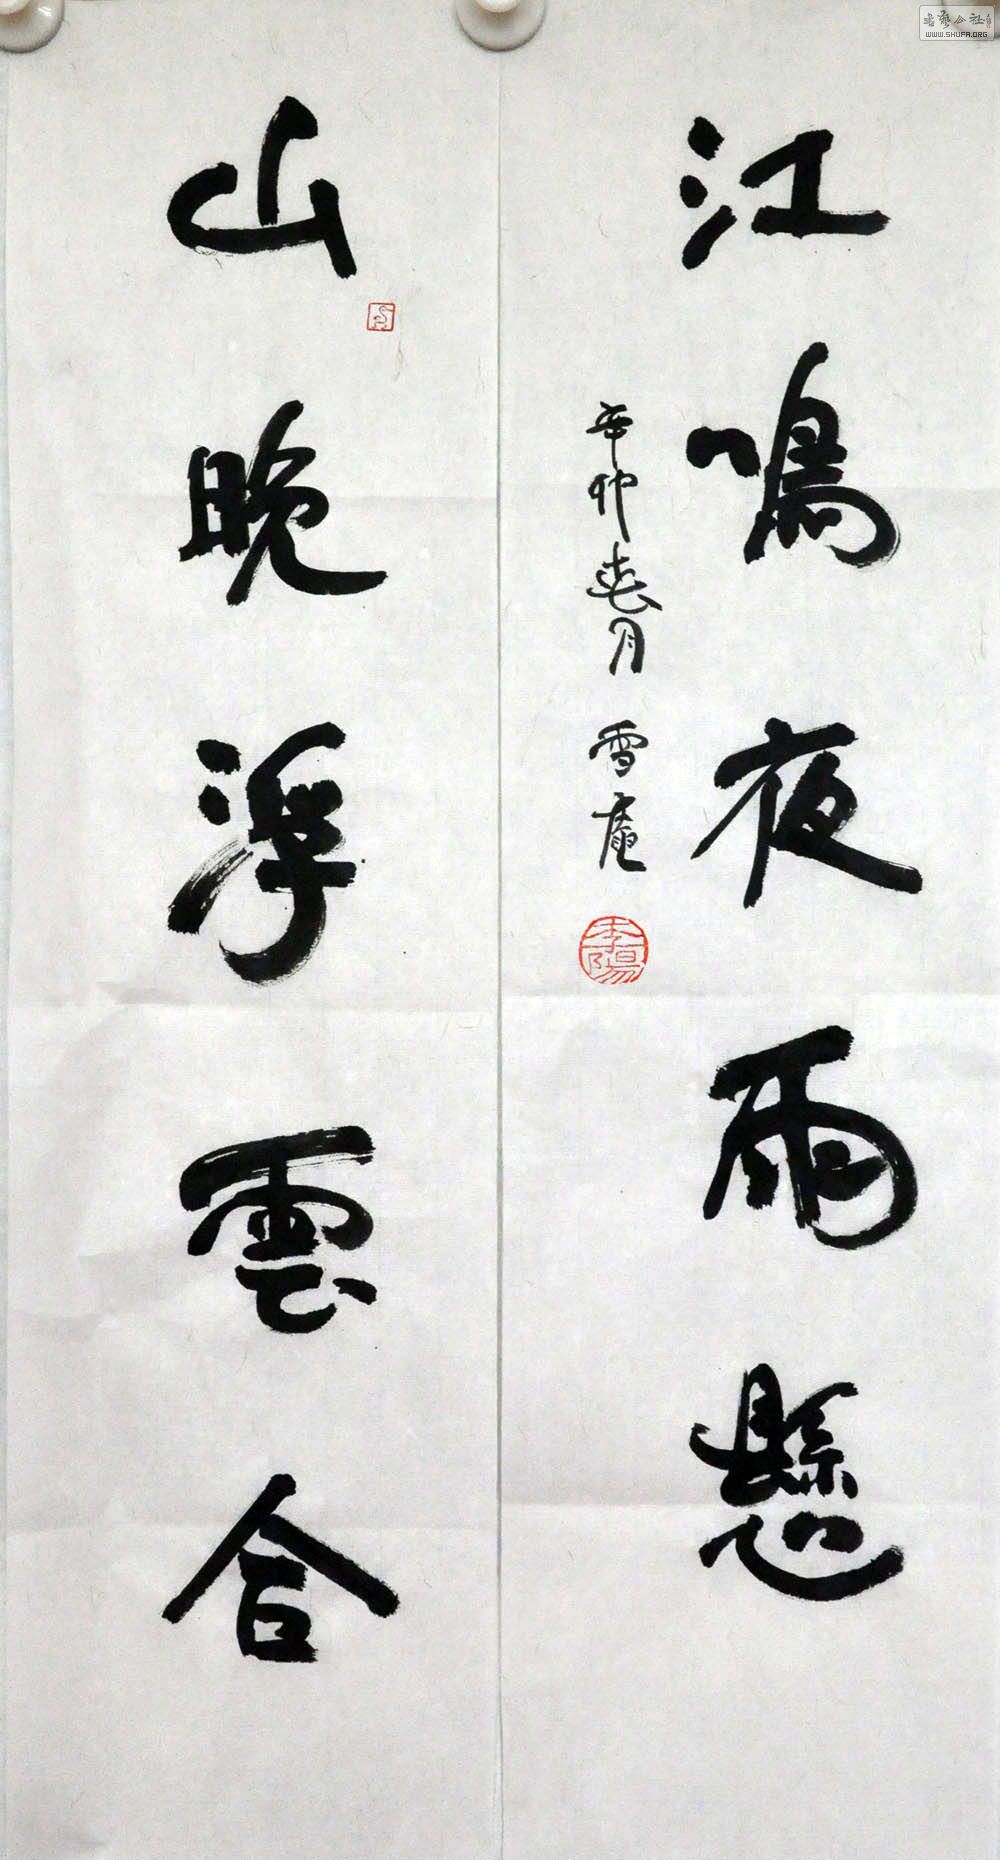 江鳴夜雨懸
辛卯春月 雪庵
李陽
山晚浮雲合
WWW.SHUFA.ORG